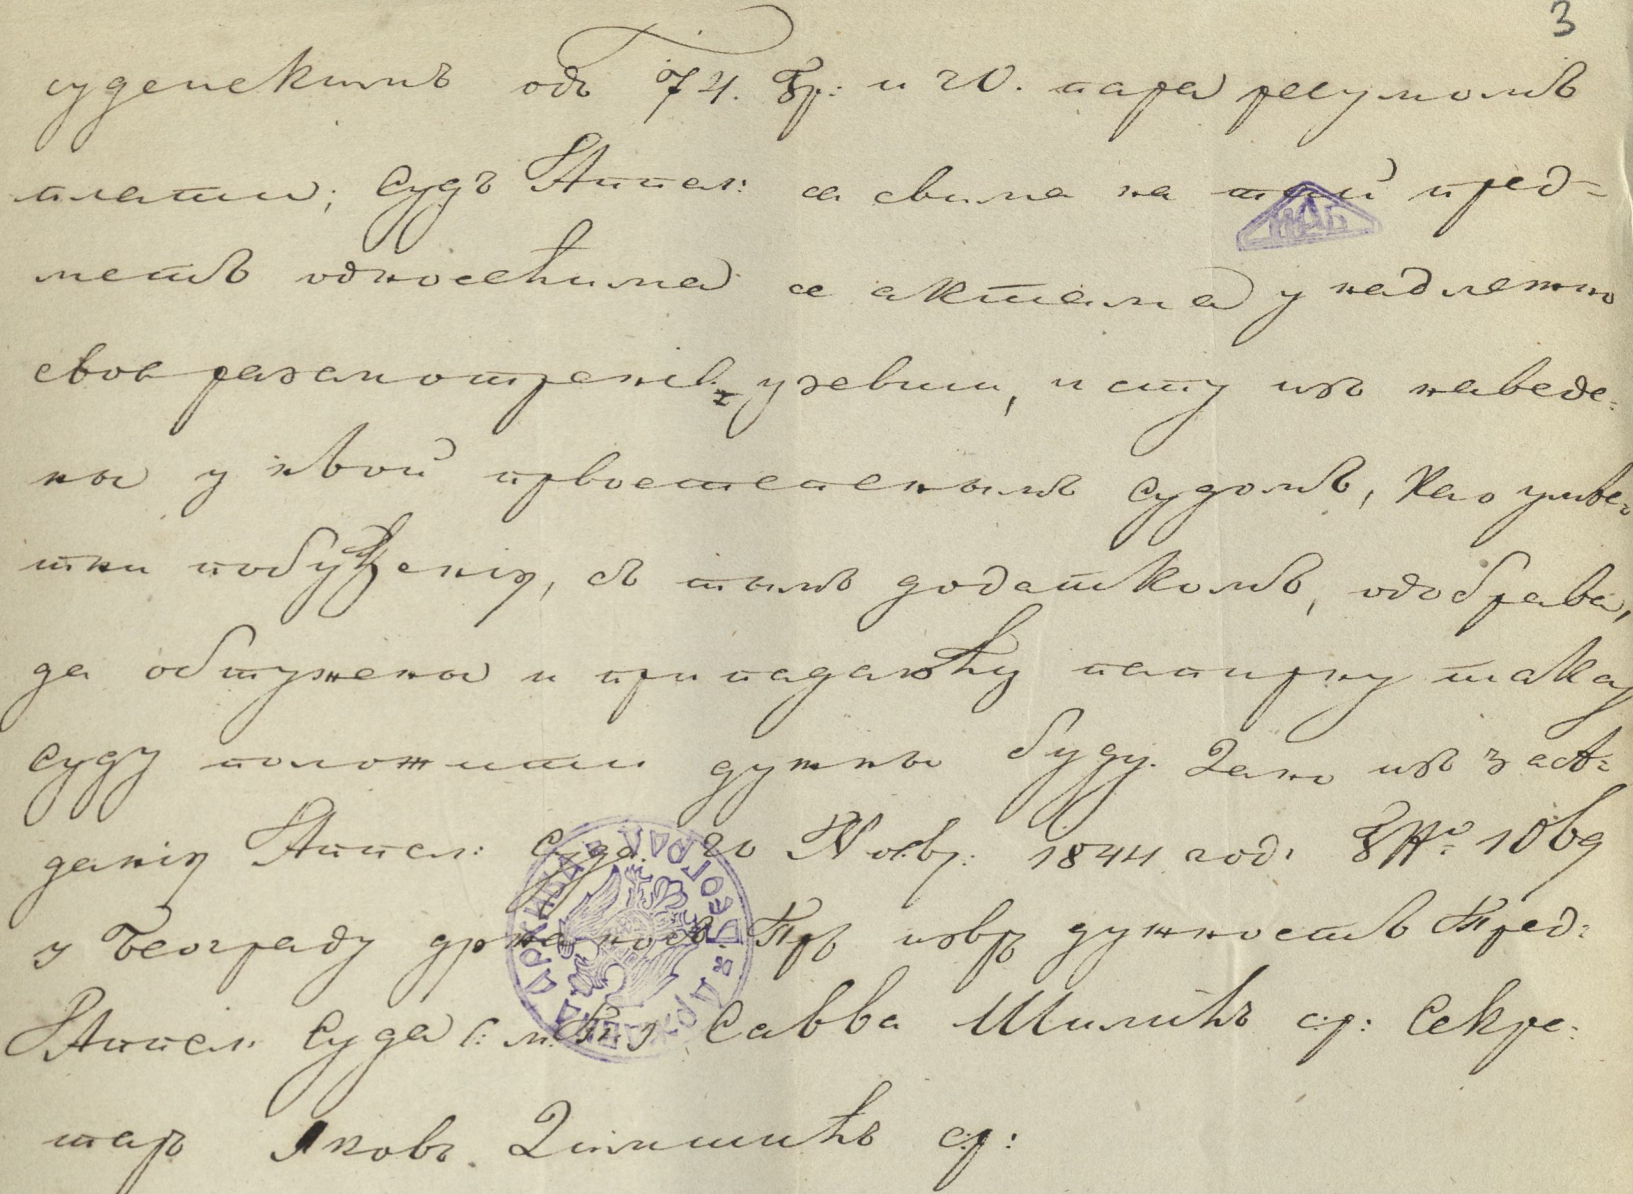 3
суденскимъ одъ 74. Гр: и 20. пара ресумомъ
платы; Судъ Аппел: са свима на тай пред=
метъ односећима се актама у надлежно
свое разсмотренѣ узевши, исту изъ наведе=
ны у ньой првостепенымъ судомъ, као умѣс=
тны побужденія, съ тымъ додаткомъ, одобрава,
да обтужены и припадаюћу папирну таксу
суду положити дужны буду. Дано изъ засѣ=
данія Аппел: Суда. 20 Новбр: 1844 год: №º 1069
у Београду држ
дужность Пред:
Аппел: Суда (: м. п:) Савва Шилићъ с.р: Секре:
таръ Яковъ с.р:
ДРЖАВНА АРХИВА БЕОГРАД